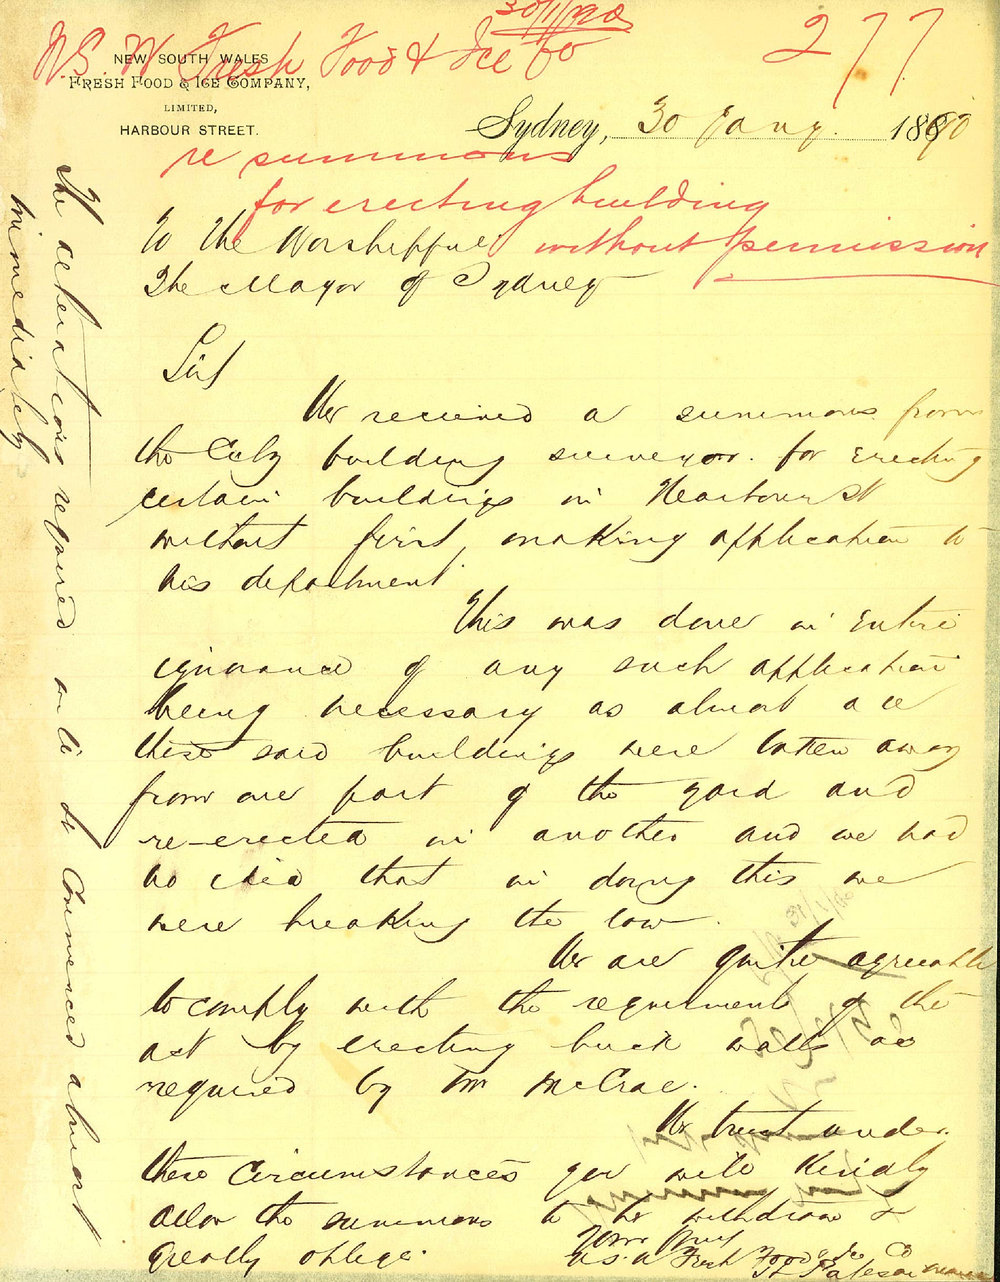 30/1/90
N.S.W Fresh Food & Ice Co
277
NEW SOUTH WALES
FRESH FOOD & ICE COMPANY,
LIMITED,
HARBOUR STREET.
Sydney, 30 Jany. 1890
re summons
for erecting building
without permission
To the Worshipful
The Mayor of Sydney
Sir
We recieved a summons from
the City building surveyor. for Erecting
certain buildings in Harbour St
without first making application to
his department.
This was done in Entire
ignorance of any such application
being necessary as almost all
these said buildings were taken away
from one part of the yard and
re-erected in another and we had
no idea that in doing this we
were breaking the law.
We are quite agreeable
to comply with the requirment of the
act by erecting brick walls as
required by Mr McCrae.
We trust under
these Circumstances you will Kindly
allow the summons to be withdrawn &
greatly oblige.
Yours truly
N.S.W Fresh Food & Ice Co
The alterations required will be Commenced almost
immediately